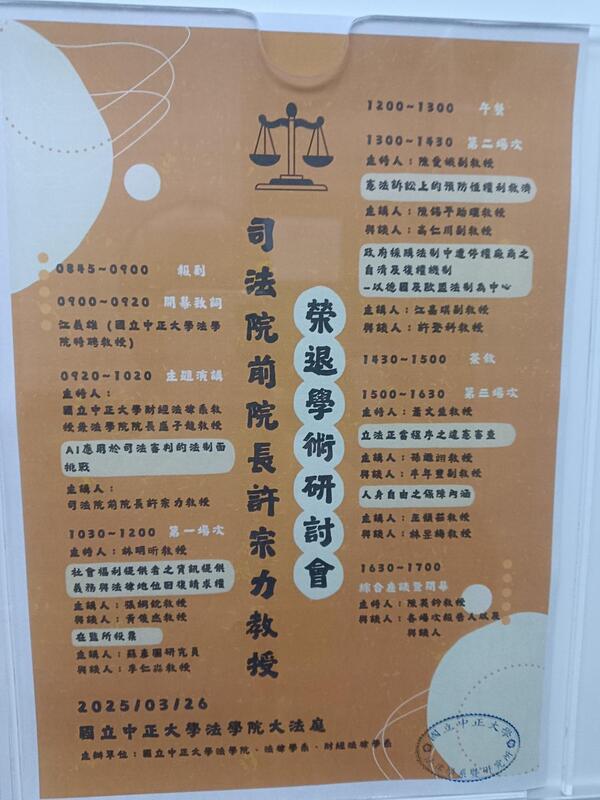 司法院前院長許宗力教授
榮退學術研討會
0845~0900 報到
0900~0920 開幕致詞
江義雄（國立中正大學法學
院特聘教授）
0920~1020 主題演講
主持人：
國立中正大學財經法律系教
授兼法學院院長盧子龍教授
AI應用於司法審判的法制面
挑戰
主講人：
司法院前院長許宗力教授
1030~1200 第一場次
主持人：林明昕教授
社會福利提供者之資訊提供
義務與法律地位回復請求權
主講人：張桐銳教授
與談人：黃俊杰教授
在監所投票
主講人：蘇彥圖研究員
與談人：李仁淼教授
1200~1300 午餐
1300~1430 第二場次
主持人：陳愛娥副教授
憲法訴訟上的預防性權利救濟
主講人：陳錫平助理教授
與談人：高仁川副教授
政府採購法制中遭停權廠商之
自清及復權機制
-以德國及歐盟法制為中心
主講人：江嘉琪副教授
與談人：許登科教授
1430~1500 茶敘
1500~1630 第三場次
主持人：蕭文生教授
立法正當程序之違憲審查
主講人：孫迺翊教授
與談人：李年豐副教授
人身自由之保障內涵
主講人：王韻茹教授
與談人：林昱梅教授
1630~1700
綜合座談暨閉幕
主持人：陳英鈐教授
與談人：各場次報告人以及
與談人
2025/03/26
國立中正大學法學院大法庭
主辦單位：國立中正大學法學院、法律學系、財經法律學系
國立中正大學